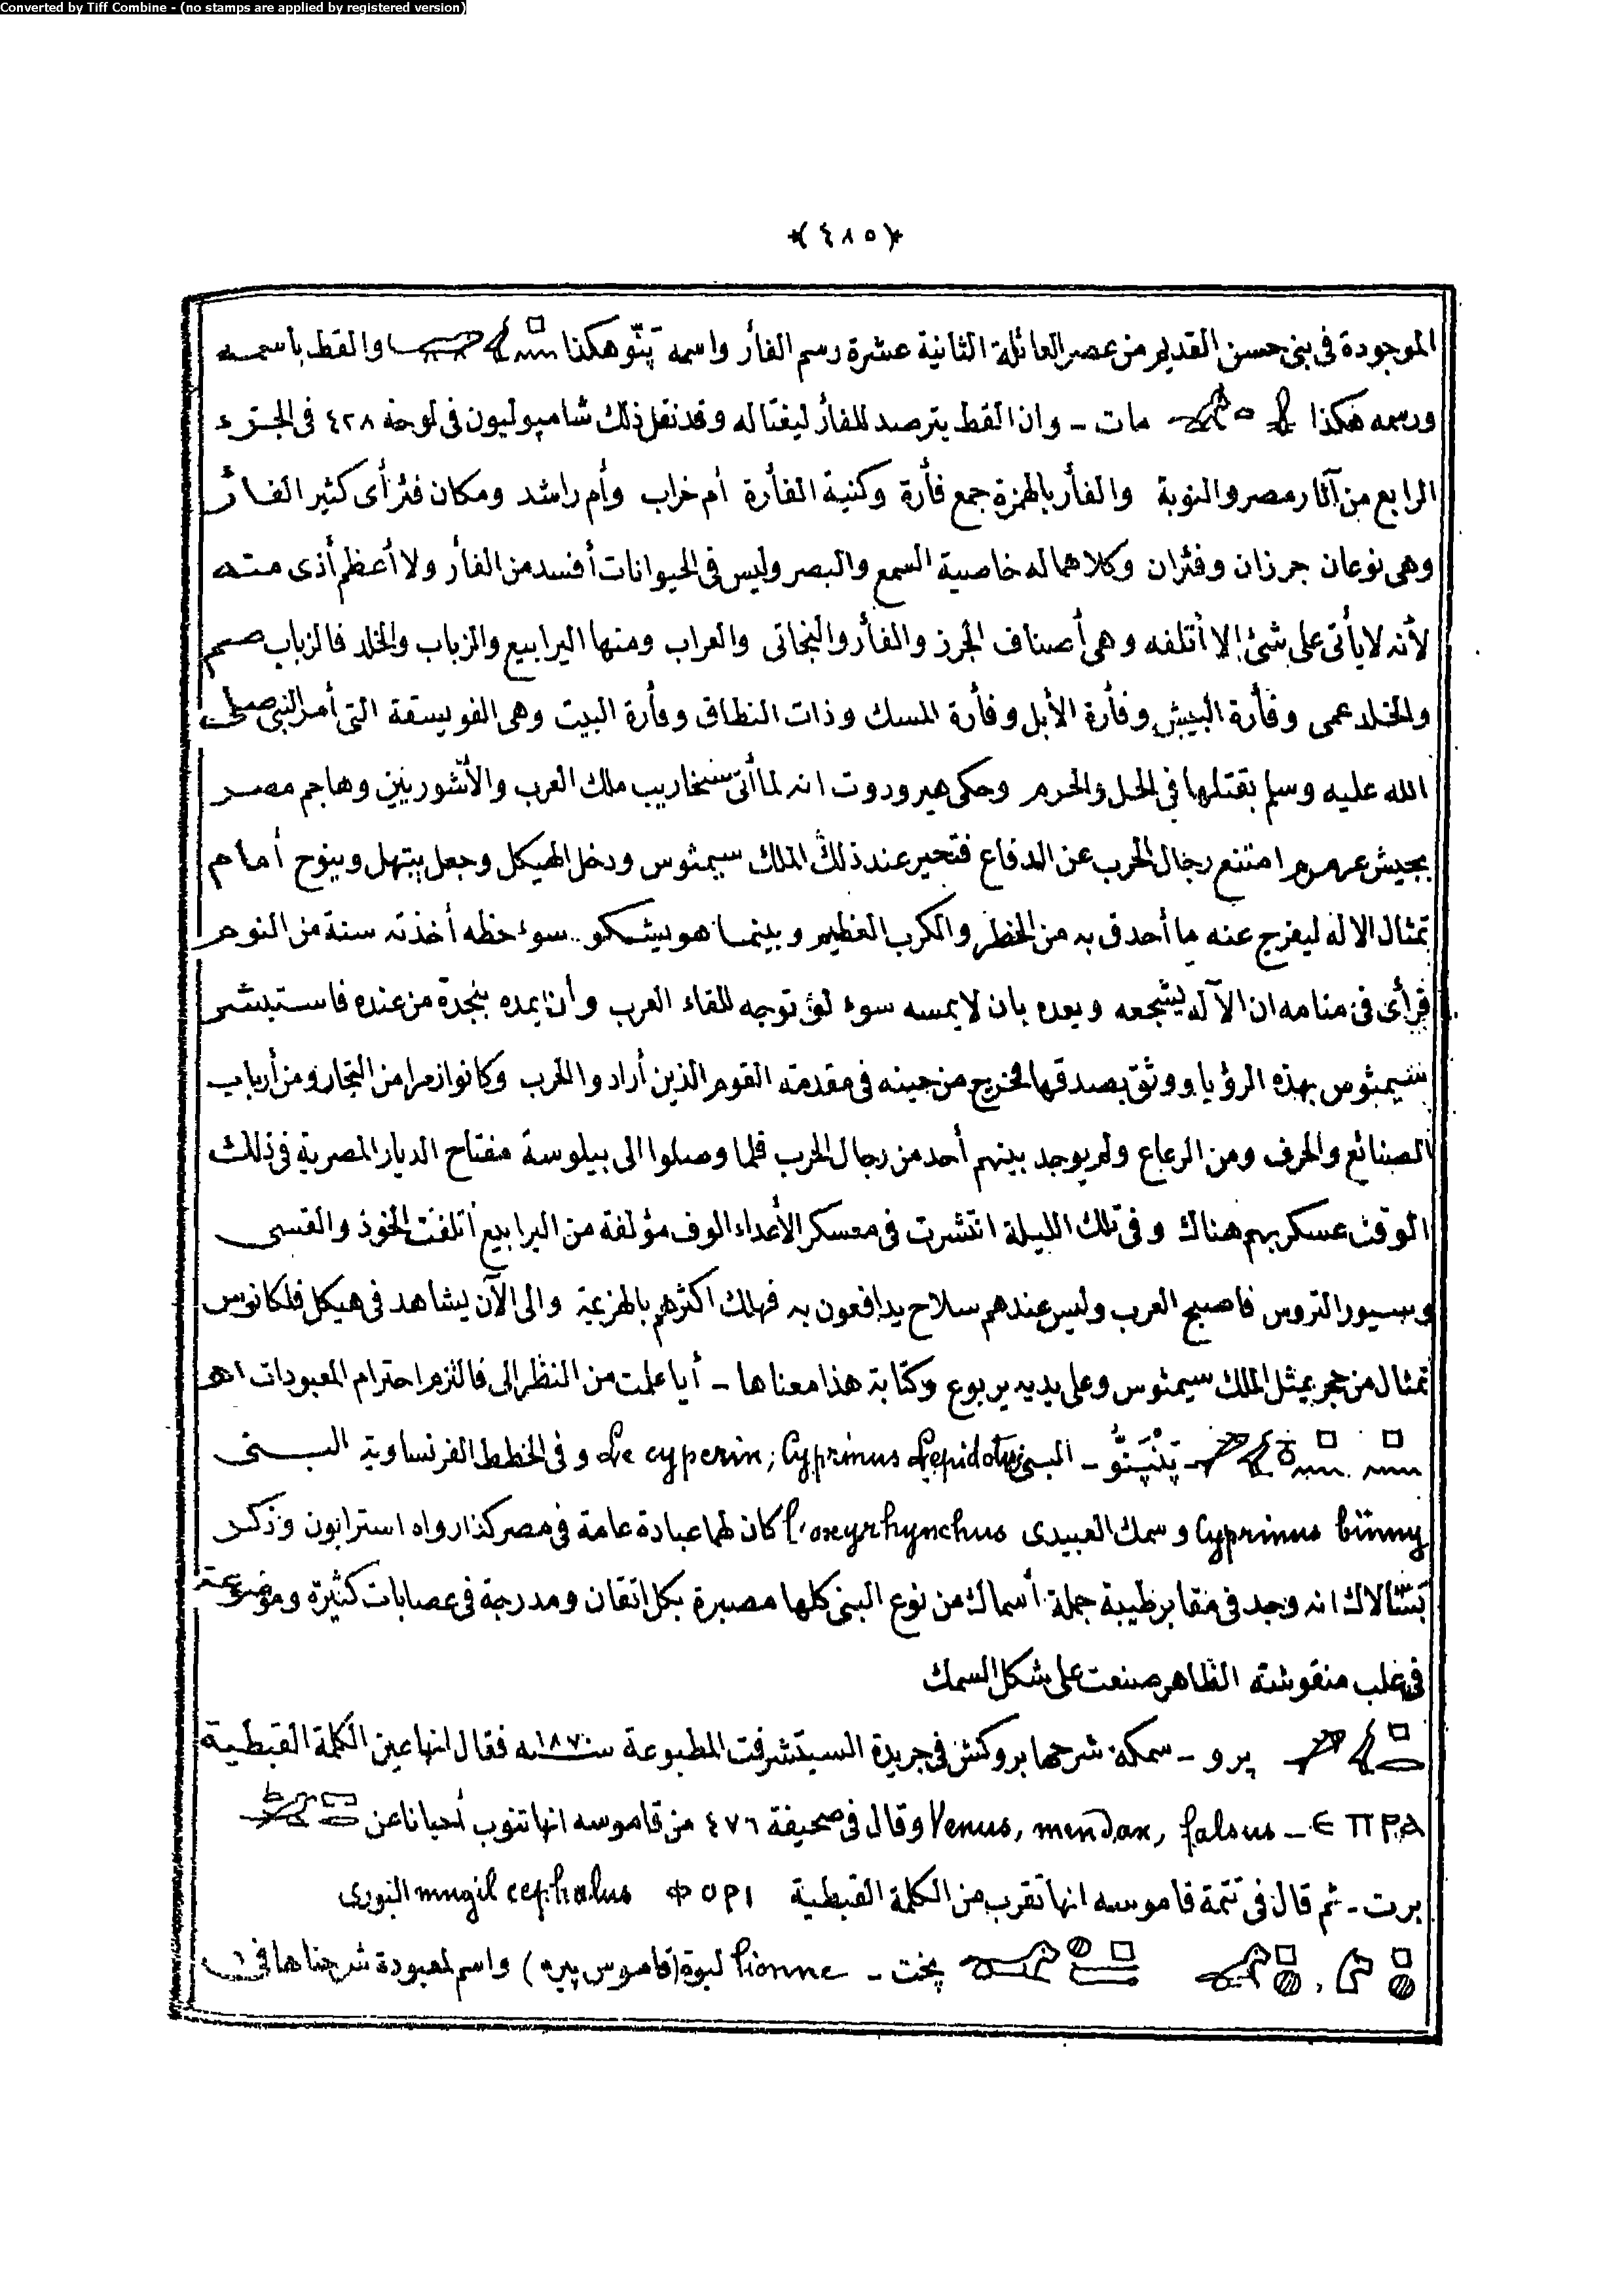 Converted by Tiff Combine - (no stamps are applied by registered version)
﴿٤٨٥﴾
الموجودة فى بنى حسن القديم من عصر العائلة الثانية عشرة رسم الفأر واسمه پَنّو هكذا والقط باسمه
ورسمه هكذا مات - وان القط يترصد للفأر ليغتاله وقد نقل ذلك شامپوليون فى لوحة ٤٢٨ فى الجزء
الرابع من آثار مصر والنوبة والفأر بالهمزة جمع فأرة وكنية الفأرة أم خراب وأم راشد ومكان فئر أى كثير الفأر
وهى نوعان جرزان وفئران وكلاهما له خاصية السمع والبصر وليس فى الحيوانات أفسد من الفأر ولا أعظم أذى منه
لأنه لا يأتى على شئ إلا أتلفه وهى أصناف الجرز والفأر والنجاتى والعراب ومنها اليرابيع والزباب والخلد فالزباب صم
والخلد عمى وفأرة البيش وفأرة الأبل وفأرة المسك وذات النطاق وفأرة البيت وهى الفويسقة التى أمر النبى صلى
الله عليه وسلم بقتلها فى الحل والحرم وحكى هيرودوت انه لما أتى سنخاريب ملك العرب والأشوريين وهاجم مصر
بجيش عرمرم امتنع رجال الحرب عن الدفاع فتحير عند ذلك الملك سيمثوس ودخل الهيكل وجعل يبتهل وينوح أمام
تمثال الاله ليفرج عنه ما أحدق به من الخطر والكرب العظيم وبينما هو يشكو سوء حظه أخذته سنة من النوم
فرأى فى منامه ان الآله يشجعه ويعده بان لا يمسه سوء لو توجه للقاء العرب وأن يمده بنجدة من عنده فاستبشر
سيمثوس بهذه الرؤيا ووثق بصدقها فخرج من حينه فى مقدمة القوم الذين أرادوا الحرب وكانوا زمرا من التجار ومن أرباب
الصنائع والحرف ومن الرعاع ولم يوجد بينهم أحد من رجال الحرب فلما وصلوا الى بيلوسة مفتاح الديار المصرية فى ذلك
الوقت عسكر بهم هناك وفى تلك الليلة انتشرت فى معسكر الأعداء الوف مؤلفة من اليرابيع أتلفت الخوذ والقسى
وسيور التروس فاصبح العرب وليس عندهم سلاح يدافعون به فهلك اكثرهم بالهزيمة والى الآن يشاهد فى هيكل فلكانوس
تمثال من حجر يمثل الملك سيمثوس وعلى يديه يربوع وكتابة هذا معناها - أيا علمت من النظر الى فالتزم احترام المعبودات اهـ
پَنْپَنُّو - البنى Le cyperin; Cyprinus Lepidotus وفى الخطط الفرنساوية البنى
Cyprinus binny وسمك العبيدى l'oxyrhynchus كان لهما عبادة عامة فى مصر كذا رواه استرابون وذكر
بستالاك انه وجد فى مقابر طيبة جملة أسماك من نوع البنى كلها مصبرة بكل اتقان ومدرجة فى عصابات كثيرة وموضوعة
فى علب منقوشة الظاهر صنعت على شكل السمك
پرو - سمكة شرحها بروكش فى جريدة السيتشرفت المطبوعة سنة ١٨٧ فقال انها عين الكلمة القبطية
ⲈⲠⲢⲀ - Venus, mendax, falsus وقال فى صحيفة ٤٧٦ من قاموسه انها تنوب أحيانا عن
برت - ثم قال فى تتمة قاموسه انها تقرب من الكلمة القبطية ⲪⲞⲢⲒ mugil cephalus البورى
پخت - lionne لبوة (قاموس پيره) واسم لمعبودة شرحناها فى